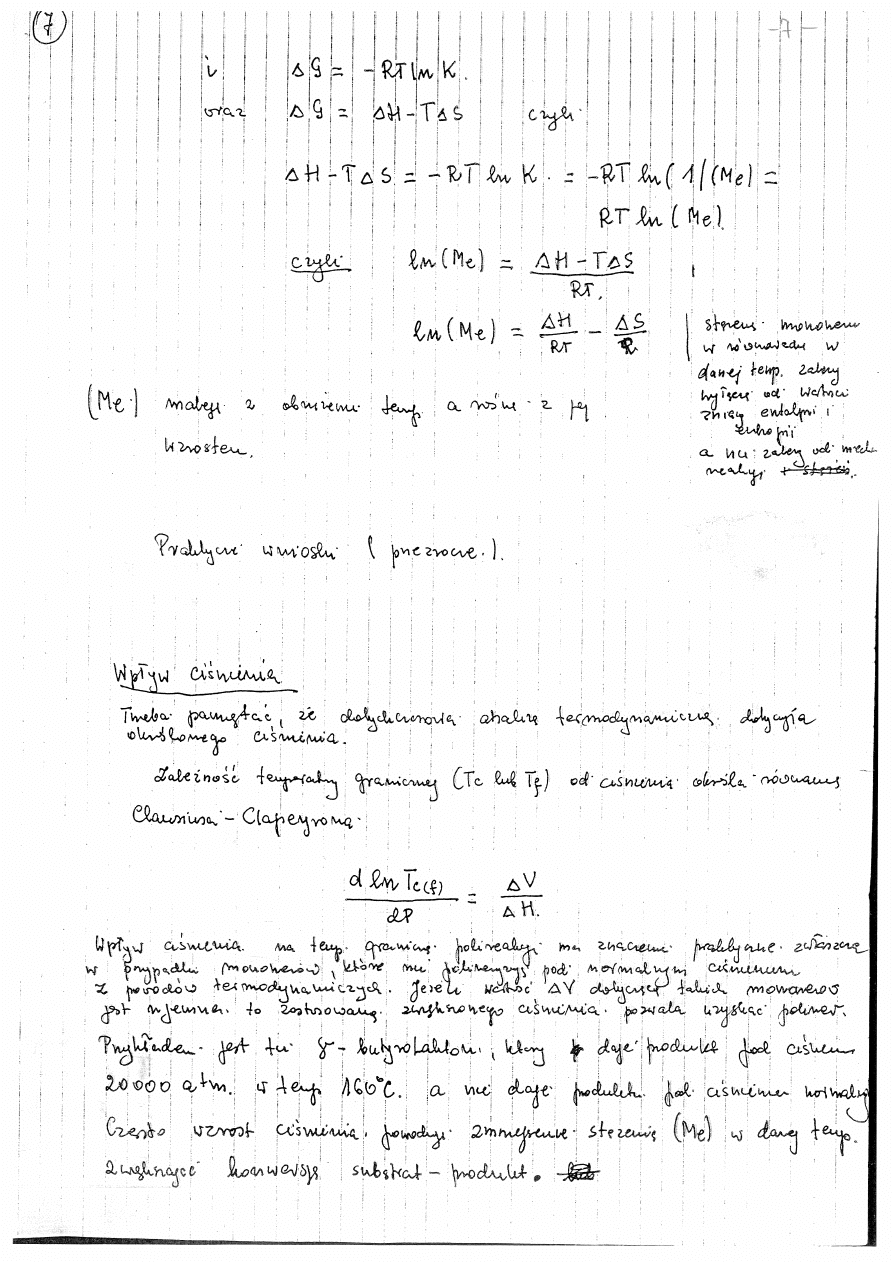 7
-7-
i ΔG = -RT ln K.
oraz ΔG = ΔH-TΔS czyli
ΔH-TΔS = -RT ln K. = -RT ln(1/(Me) =
RT ln (Me)
czyli ln(Me) = ΔH-TΔS / RT.
ln(Me) = ΔH/RT - ΔS/R
stężenie monomeru
w równowadze w
danej temp. zależy
wyłącznie od wartości
zmiany entalpii i
entropii
a nie zależy od mech.
reakcji
(Me) maleje z obniżeniem temp. a rośnie z jej
wzrostem.
Praktyczne wnioski (przezrocze.).
Wpływ ciśnienia
Trzeba pamiętać, że dotychczasowa analiza termodynamiczna dotyczyła
określonego ciśnienia.
Zależność temperatury granicznej (Tc lub Tf) od ciśnienia określa równanie
Clausiusa-Clapeyrona.
d ln Tc(f) / dP = ΔV / ΔH.
Wpływ ciśnienia na temp. graniczną polireakcji ma znaczenie praktyczne zwłaszcza
w przypadku monomerów, które nie polimeryzują pod normalnym ciśnieniem
z powodów termodynamicznych. Jeżeli wartość ΔV dotycząca takich monomerów
jest ujemna to zastosowanie zwiększonego ciśnienia pozwala uzyskać polimer.
Przykładem jest tu γ-butyrolakton, który daje produkt pod ciśnien.
20000 atm. w temp 160°C. a nie daje produktu pod ciśnieniem normalnym
Często wzrost ciśnienia powoduje zmniejszenie stężenia (Me) w danej temp.
zwiększając konwersję substrat-produkt.